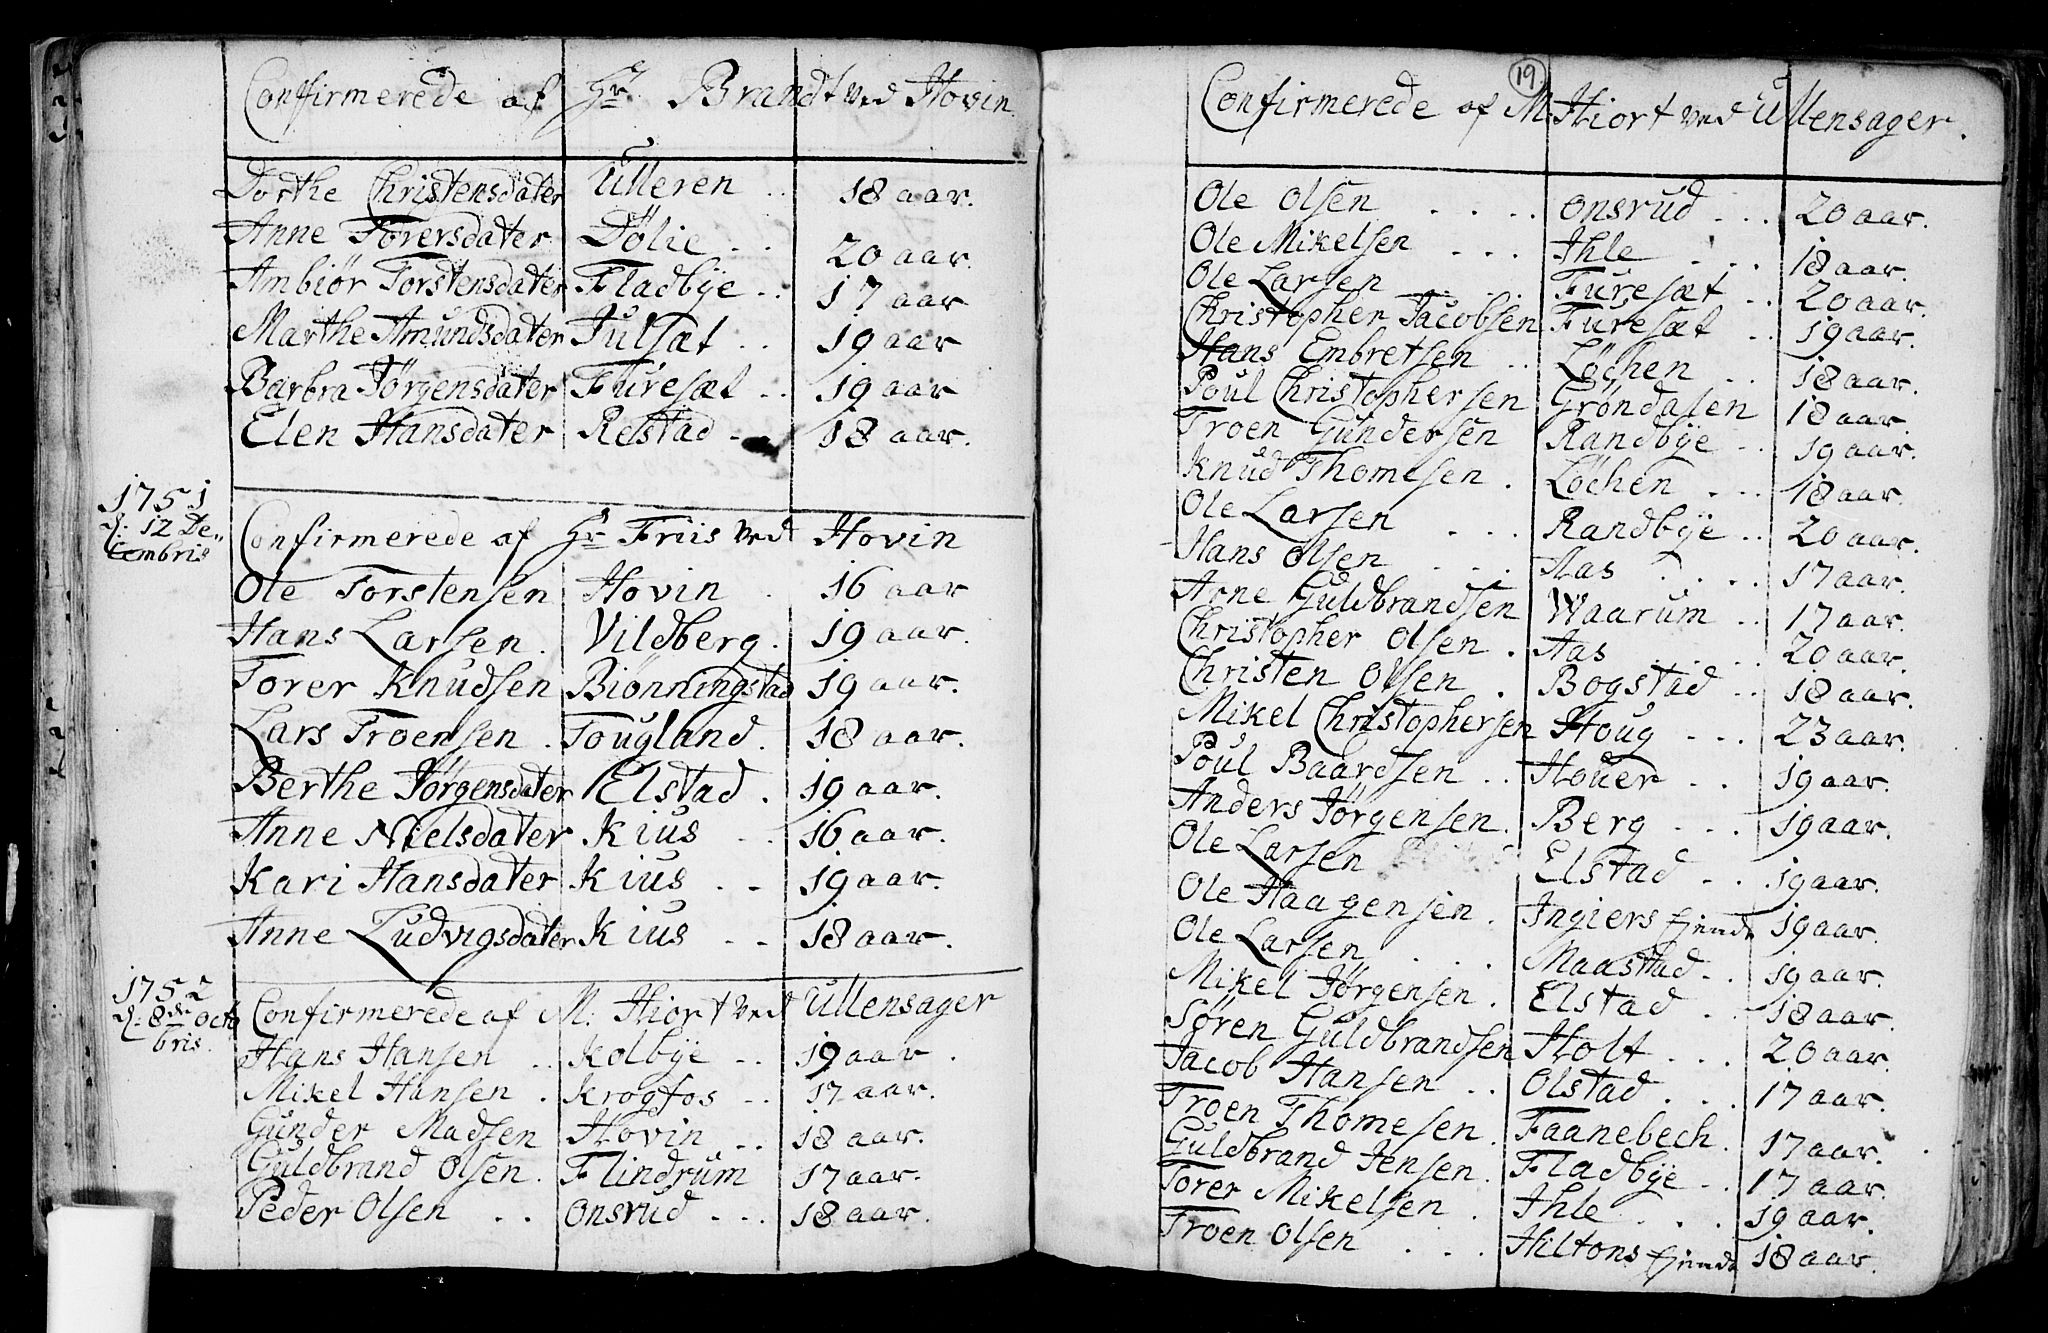 Confirmerede af Hr Brandt ved Hovin.
Dorthe Christensdater Ulleren .. 18 aar.
Anne Torersdater Dølie .. 20 aar.
Anbiør Torstensdater Fladbye .. 17 aar
Marthe Amundsdater Julsæt .. 19 aar
Barbra Jørgensdater Furesæt .. 19 aar
Elen Hansdater Relstad .. 18 aar.
1751
d: 12 De„
cembris
Confirmerede af Hr Friis ved Hovin
Ole Torstensen Hovin . 16 aar
Hans Larsen. Vildberg. 19 aar.
Torer Knudsen Biønningstad 19 aar.
Lars Troensen . Tougland. 18 aar.
Berthe Jørgensdater Elstad . 19 aar.
Anne Nielsdater Kius .. 16 aar.
Kari Hansdater Kius .. 19 aar.
Anne Ludvigsdater Kius .. 18 aar.
1752
d: 8de Octo
bris.
Confirmerede af M. Hiort ved Ullensager
Hans Hansen .. Kolbye .. 19 aar.
Mikel Hansen . Krogfos .. 17 aar.
Gunder Madsen Hovin .. 18 aar.
Guldbrand Olsen. Flindrum 17 aar.
Peder Olsen .. Onsrud ... 18 aar.
19
Confirmerede af M. Hiort ved Ullensager.
Ole Olsen .... Onsrud ... 20 aar.
Ole Mikelsen ... Ihle ... 18 aar.
Ole Larsen .. Furesæt .. 20 aar.
Christopher Jacobsen Furesæt .. 19 aar.
Hans Embretsen .. Løchen .. 18 aar.
Poul Christophersen Grøndalen 18 aar.
Troen Gundersen Randbye .. 19 aar.
Knud Thomesen . Løchen ... 18 aar.
Ole Larsen ... Randbye .. 20 aar.
Hans Olsen ... Aas .... 17 aar.
Arne Guldbrandsen Waarum .. 17 aar.
Christopher Olsen . Aas ... 20 aar.
Christen Olsen . Bogstad .. 18 aar.
Mikel Christophersen Houg ... 23 aar.
Poul Baardsen .. Houer .. 19 aar.
Anders Jørgensen. Berg ... 19 aar.
Ole Larsen Elstad .. 19 aar.
Ole Haagensen . Ingiers Ejende 19 aar.
Ole Larsen ... Maastad.. 19 aar.
Mikel Jørgensen . Elstad .. 18 aar.
Søren Guldbrandsen Holt ... 20 aar.
Jacob Hansen .. Olstad ... 17 aar.
Troen Thomesen . Faanebech. 17 aar.
Guldbrand Jensen. Fladbye .. 17 aar.
Torer Mikelsen . Ihle ... 19 aar.
Troen Olsen ... Hiltons Ejende 18 aar.